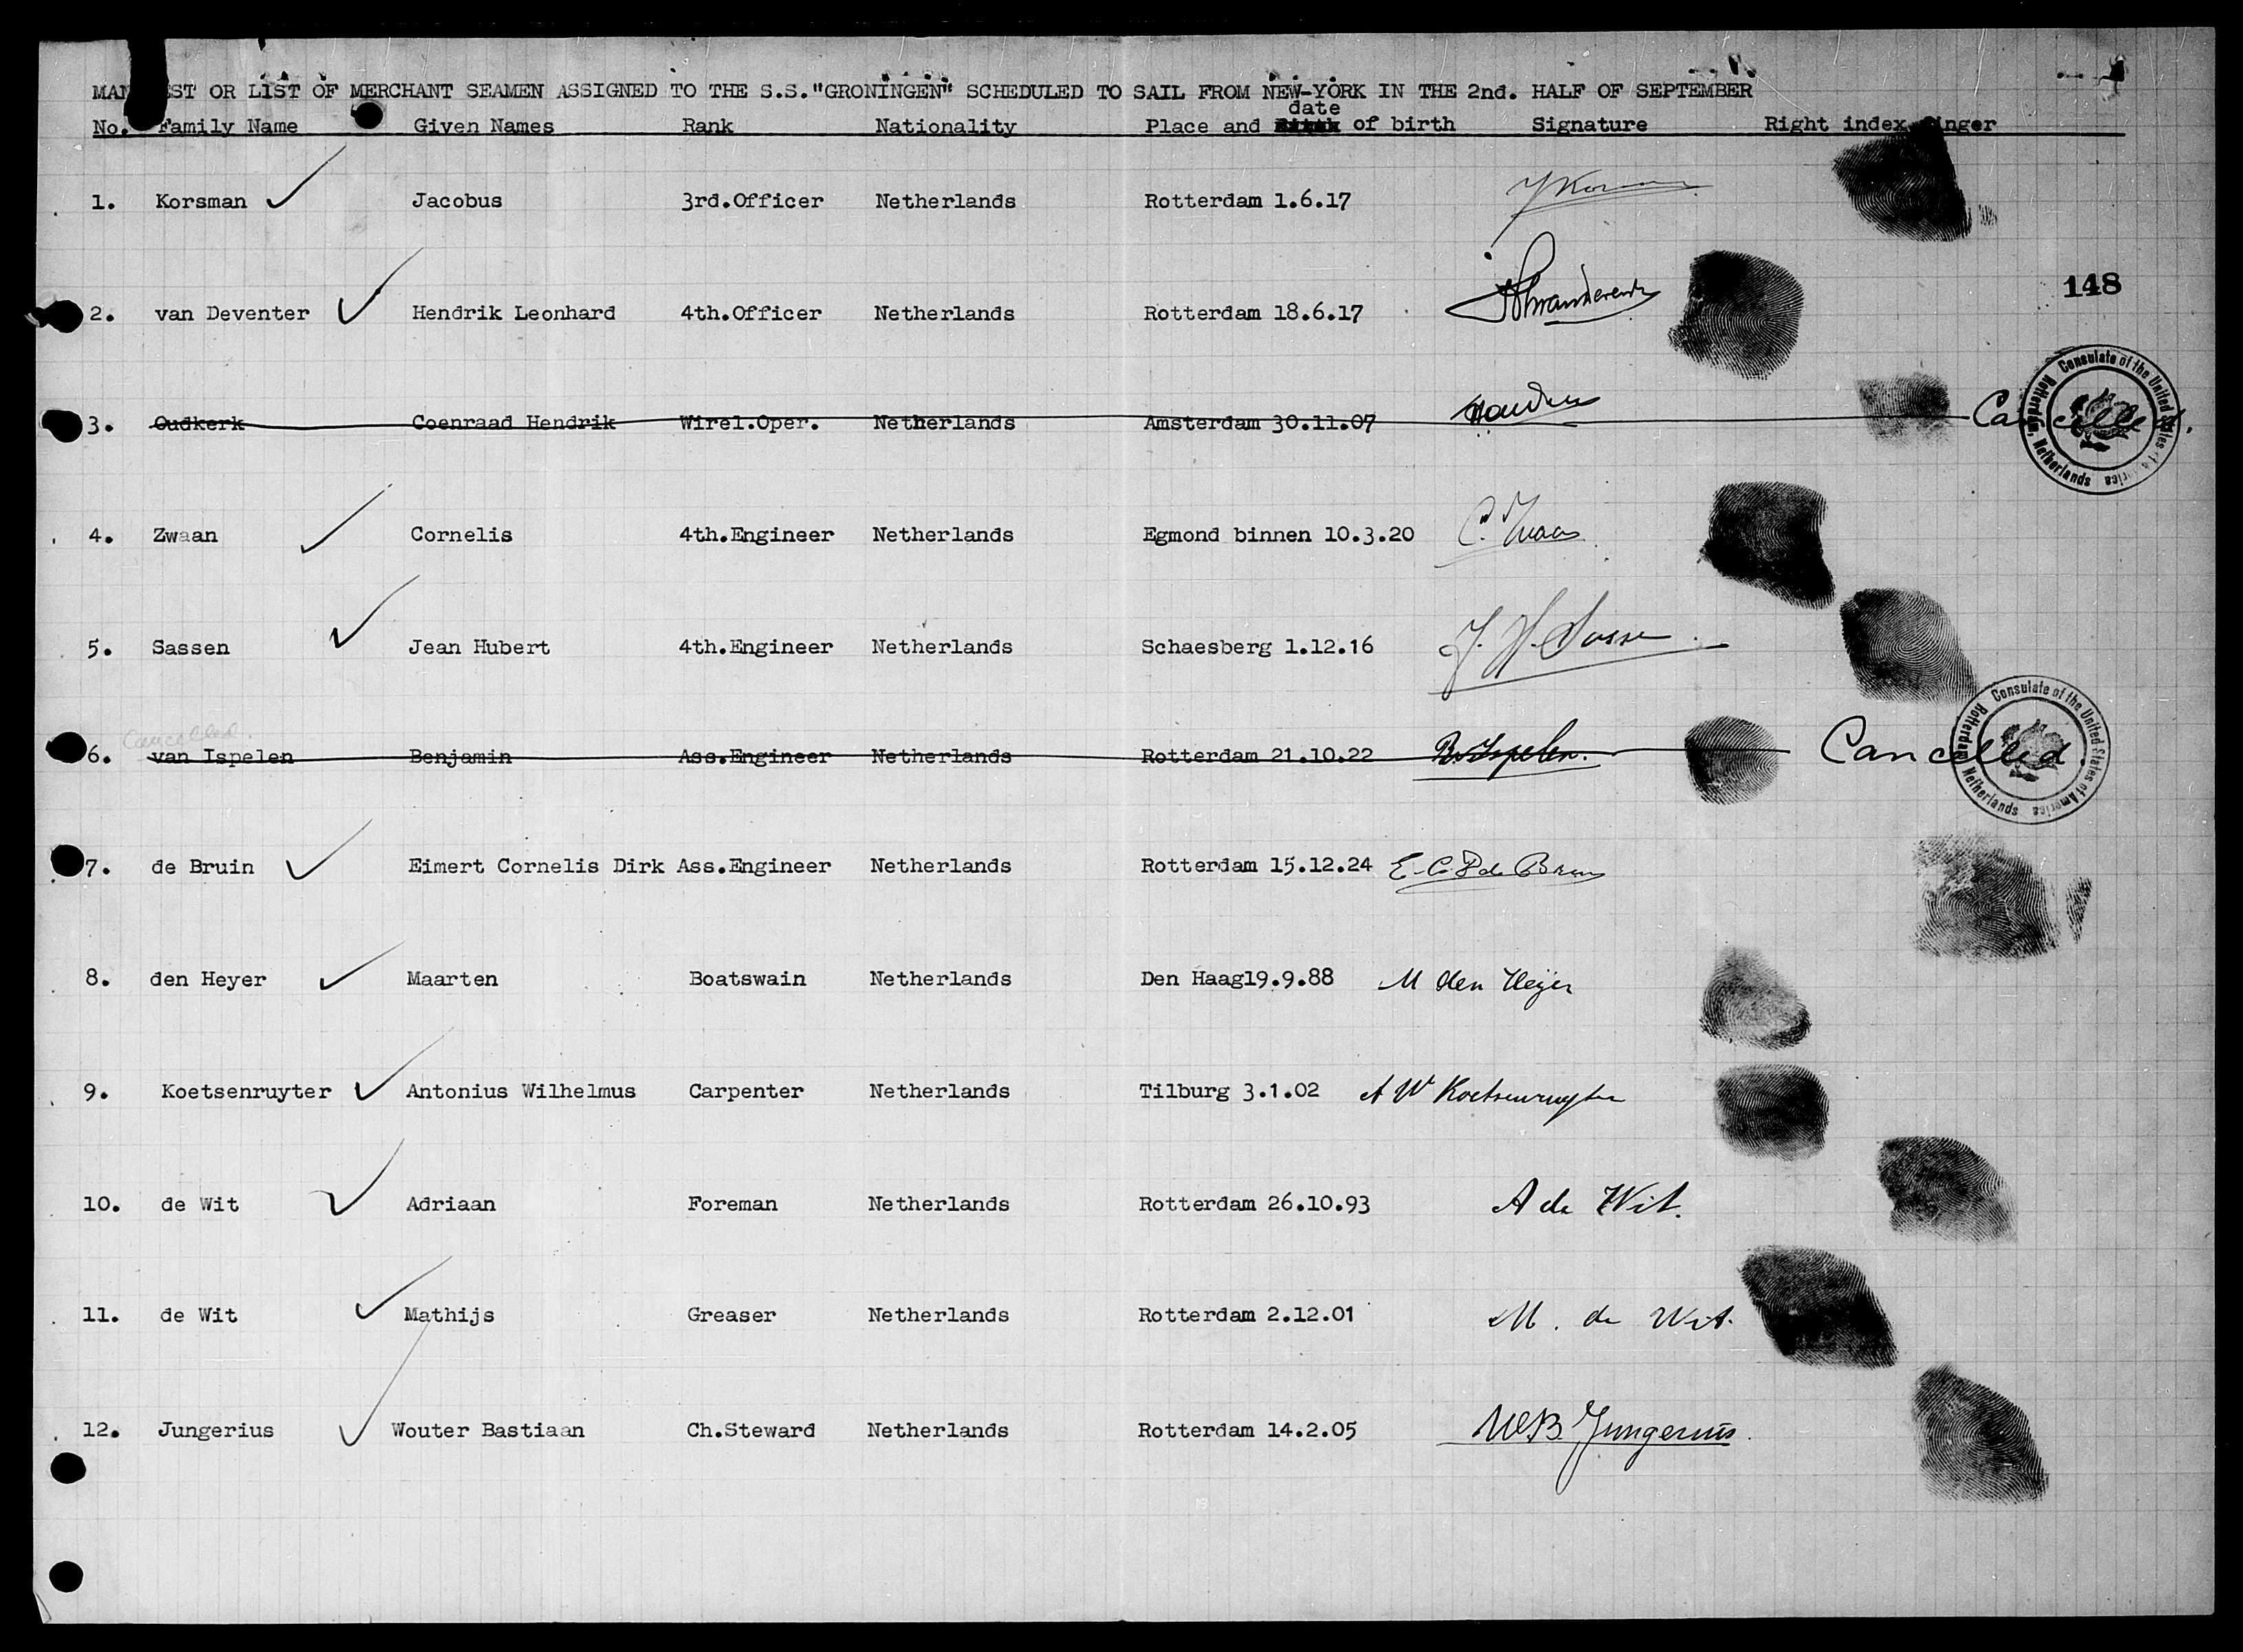 MAN EST OR LIST OF MERCHANT SEAMEN ASSIGNED TO THE S.S."GRONINGEN" SCHEDULED TO SAIL FROM NEW-YORK IN THE 2nd. HALF OF SEPTEMBER
No. Family Name Given Names Rank Nationality Place and date of birth Signature Right index finger
1. Korsman Jacobus 3rd.Officer Netherlands Rotterdam 1.6.17
148
2. van Deventer Hendrik Leonhard 4th.Officer Netherlands Rotterdam 18.6.17
3. Oudkerk Coenraad Hendrik Wirel.Oper. Netherlands Amsterdam 30.11.07 Cancelled.
Consulate of the United States of America Rotterdam, Netherlands
4. Zwaan Cornelis 4th.Engineer Netherlands Egmond binnen 10.3.20 C. Zwaan
5. Sassen Jean Hubert 4th.Engineer Netherlands Schaesberg 1.12.16 J. H. Sassen
Cancelled.
6. van Ispelen Benjamin Ass.Engineer Netherlands Rotterdam 21.10.22 B.v.Ispelen. Cancelled.
Consulate of the United States of America Rotterdam, Netherlands
7. de Bruin Eimert Cornelis Dirk Ass.Engineer Netherlands Rotterdam 15.12.24 E.C.D de Bruin
8. den Heyer Maarten Boatswain Netherlands Den Haag19.9.88 M den Heijer
9. Koetsenruyter Antonius Wilhelmus Carpenter Netherlands Tilburg 3.1.02 A W Koetsenruyter
10. de Wit Adriaan Foreman Netherlands Rotterdam 26.10.93 A de Wit.
11. de Wit Mathijs Greaser Netherlands Rotterdam 2.12.01 M. de Wit.
12. Jungerius Wouter Bastiaan Ch.Steward Netherlands Rotterdam 14.2.05 W.B. Jungerius